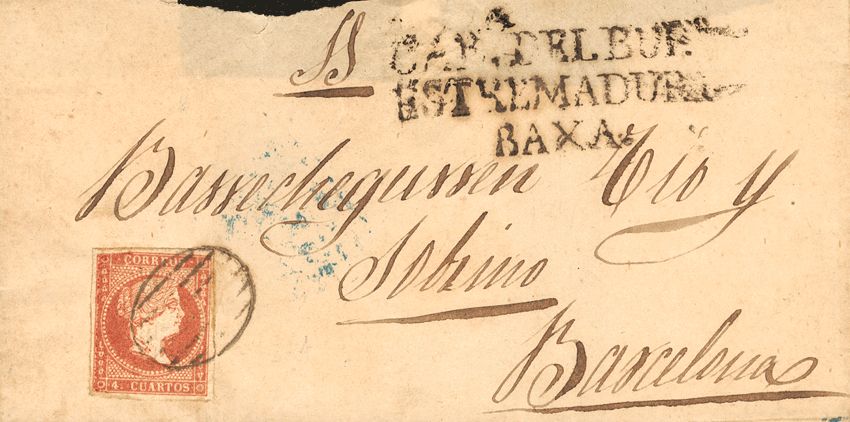 SS
CAB. DEL BUE
ESTREMADURA
BAXA.
Barrechegurren Tio y
Sobrino
Barcelona
CORREOS
4 CUARTOS